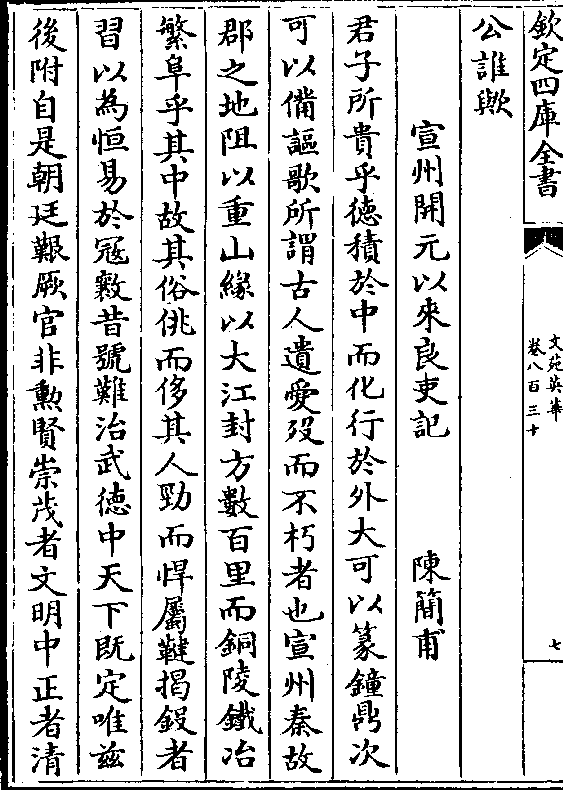 欽定四庫全書
文苑英華
卷八百三十
七
公誰歟
宣州開元以來良吏記　陳簡甫
君子所貴乎徳積於中而化行於外大可以篆鐘鼎次
可以備謳歌所謂古人遺愛歿而不朽者也宣州秦故
郡之地阻以重山緣以大江封方數百里而銅陵鐵冶
繁阜乎其中故其俗佻而侈其人勁而悍屬鞬揭鎩者
習以為恒易於冦斁昔號難治武徳中天下既定唯兹
後附自是朝廷艱厥官非勲賢崇茂者文明中正者清